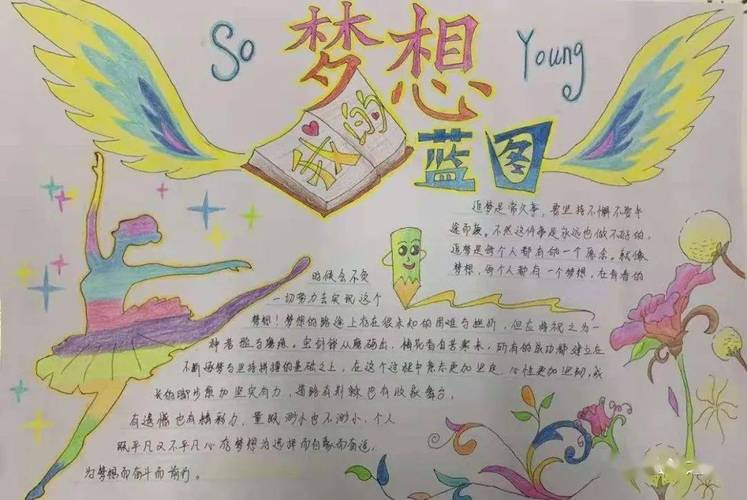 So 梦想 Young
我的
蓝图
追梦是常久事，要坚持不懈不要半
途而废。不然这件事是永远也做不好的。
追梦是每个人都有的一个愿念。就像
梦想，每个人都有一个梦想，在有者的
时候会不受
一切努力去实现这个
梦想！梦想的路途上存在很未知的困难与挫折，但应将视之为一
种考验与磨练。宝剑锋从磨砺出，梅花香自苦寒来，所有的成功都建立在
不断逐梦与坚持拼搏的基础之上，在这个过程中意志更加坚定 心性更加坚韧，成
长的脚步愈加坚实有力，道路有荆棘也有收获舞台，
有遗憾也有精彩力，量既渺小也不渺小，个人
既平凡又不平凡心存梦想为选择而自豪而奋进，
为梦想而奋斗而前行。